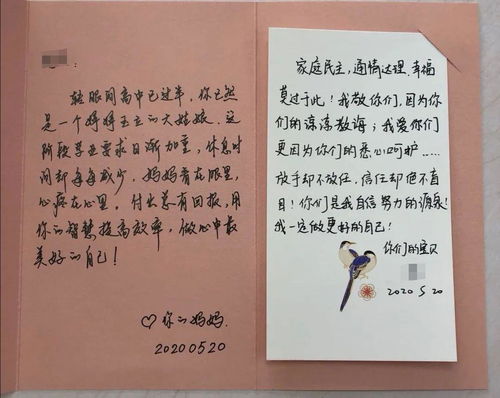 转眼间高中已过半,你已然
是一个婷婷玉立的大姑娘。这
阶段学业要求日渐加重,休息时
间却每每减少。妈妈看在眼里,
心疼在心里。付出总有回报,用
你的智慧提高效率,做心中最
美好的自己!
♡你的妈妈.
20200520
家庭民主,通情达理,幸福
莫过于此!我敬你们,因为你
们的谆谆教诲;我爱你们
更因为你们的悉心呵护……
放手却不放任,信任却但不盲
目!你们是我自信努力的源泉!
我一定做更好的自己!
你们的宝贝
2020 5.20